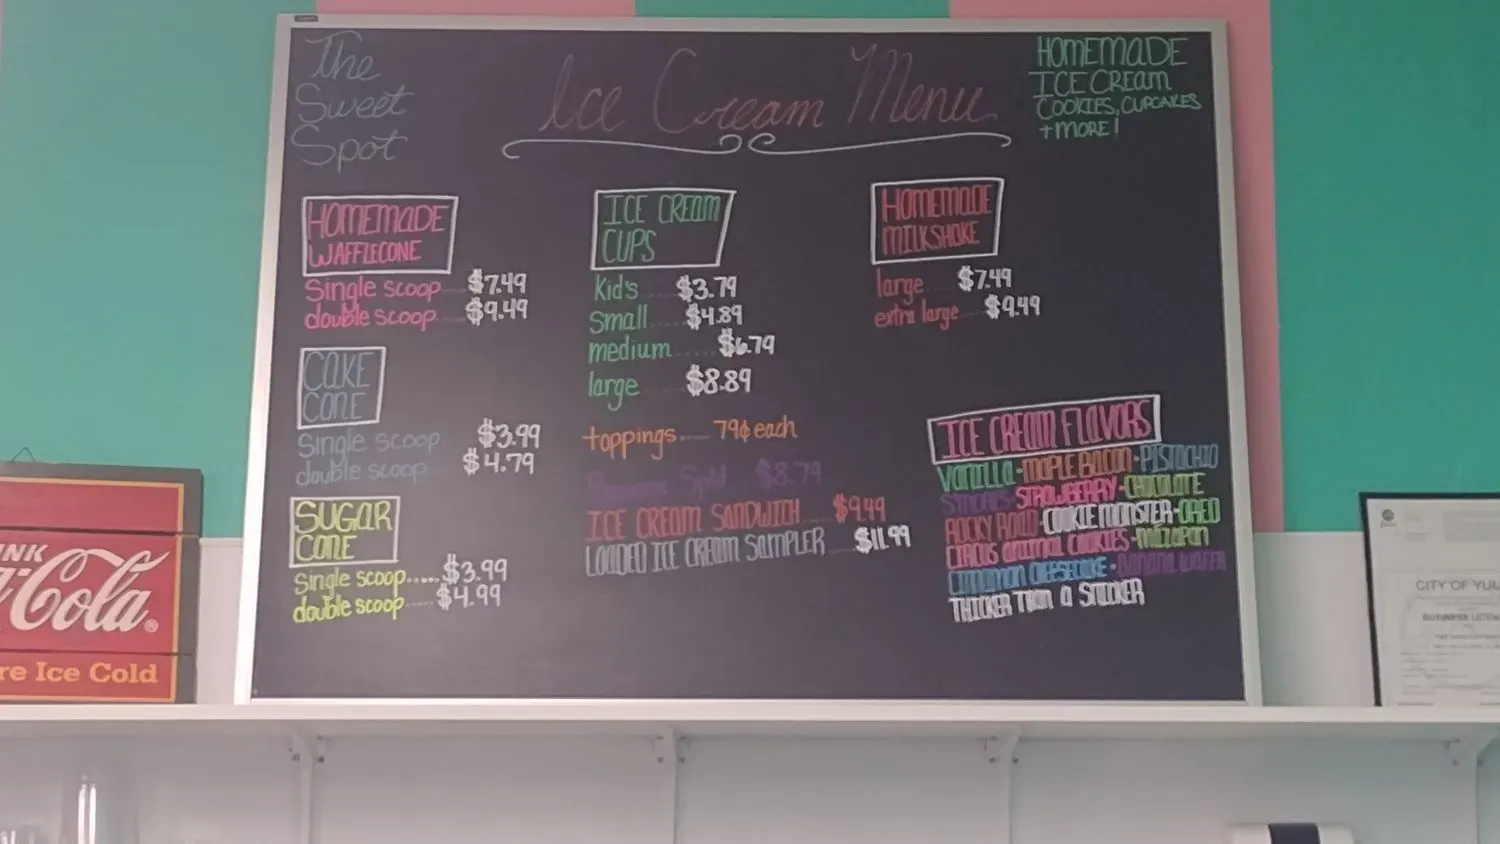 The
Sweet
Spot
Ice Cream Menu
HOMEMADE
ICE CREAM
COOKIES, CUPCAKES
+MORE!
HOMEMADE
WAFFLECONE
Single scoop $7.49
double scoop $9.49
CAKE
CONE
Single scoop $3.99
double scoop $4.79
SUGAR
CONE
Single scoop...... $3.99
double scoop...... $4.99
ICE CREAM
CUPS
Kid's $3.79
Small $4.89
medium ..... $6.79
large $8.89
toppings.... 79¢ each
Banana Split $8.79
ICE CREAM SANDWICH $9.49
LOADED ICE CREAM SAMPLER .... $11.99
HOMEMADE
MILKSHAKE
large $7.49
extra large $9.49
ICE CREAM FLAVORS
VANILLA - MAPLE BACON - PISTACHIO
S'MORES STRAWBERRY - CHOCOLATE
ROCKY ROAD - COOKIE MONSTER - OREO
CIRCUS ANIMAL COOKIES - MAZAPAN
CINNAMON CHEESECAKE - BANANA WAFER
THICKER THAN A SNICKER
INK
Cola
®
re Ice Cold
CITY OF YU
BUSINESS LICEN